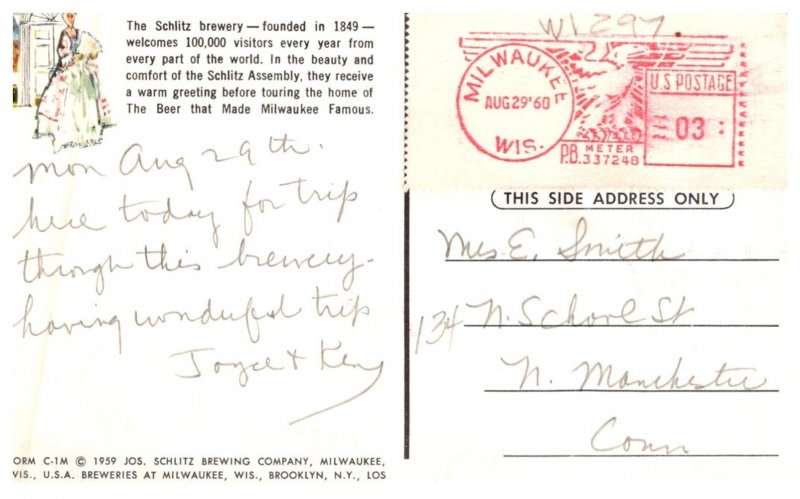 The Schlitz brewery — founded in 1849 —
welcomes 100,000 visitors every year from
every part of the world. In the beauty and
comfort of the Schlitz Assembly, they receive
a warm greeting before touring the home of
The Beer that Made Milwaukee Famous.
Mon Aug 29th.
here today for trip
through this brewery -
having wonderful trip
Joyce + Ken
ORM C-1M © 1959 JOS. SCHLITZ BREWING COMPANY, MILWAUKEE,
VIS., U.S.A. BREWERIES AT MILWAUKEE, WIS., BROOKLYN, N.Y., LOS
WI 297
MILWAUKEE
AUG 29 '60
WIS.
U.S. POSTAGE
03
P.B. METER
337248
(THIS SIDE ADDRESS ONLY)
Mrs E. Smith
134 N. School St
N. Manchester
Conn